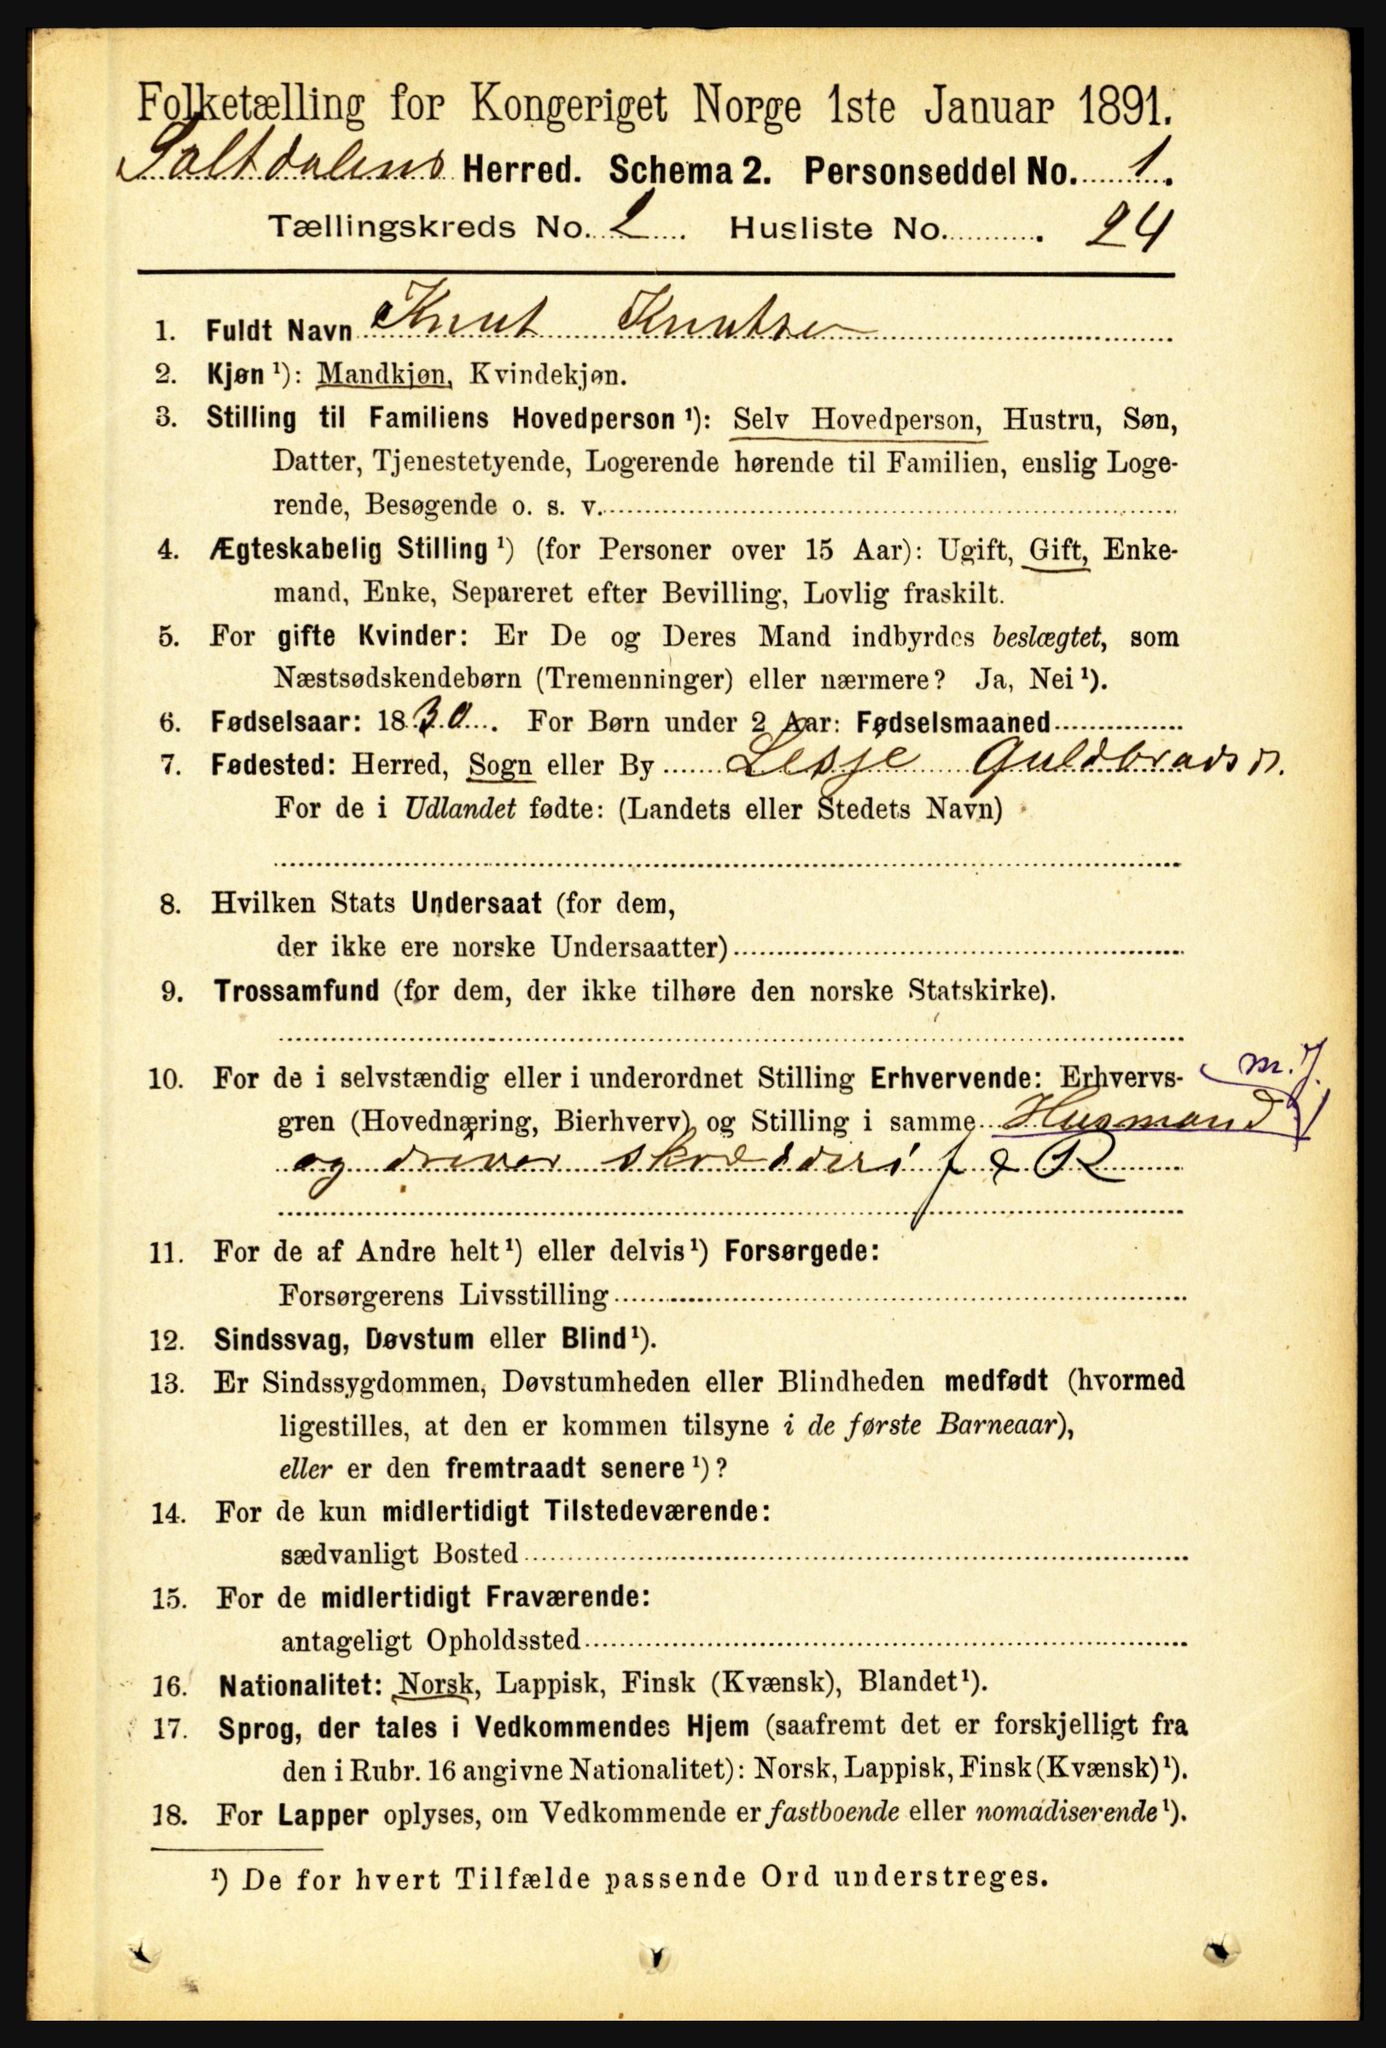 Folketælling for Kongeriget Norge 1ste Januar 1891.
Saltdalens Herred. Schema 2. Personseddel No. 1.
Tællingskreds No. 2. Husliste No. 24
1. Fuldt Navn Knut Knutsen
2. Kjøn ¹): Mandkjøn, Kvindekjøn.
3. Stilling til Familiens Hovedperson ¹): Selv Hovedperson, Hustru, Søn,
Datter, Tjenestetyende, Logerende hørende til Familien, enslig Loge-
rende, Besøgende o. s. v.
4. Ægteskabelig Stilling ¹) (for Personer over 15 Aar): Ugift, Gift, Enke-
mand, Enke, Separeret efter Bevilling, Lovlig fraskilt.
5. For gifte Kvinder: Er De og Deres Mand indbyrdes beslægtet, som
Næstsødskendebørn (Tremenninger) eller nærmere? Ja, Nei ¹).
6. Fødselsaar: 1830. For Børn under 2 Aar: Fødselsmaaned
7. Fødested: Herred, Sogn eller By Lesje Guldbradsd.
For de i Udlandet fødte: (Landets eller Stedets Navn)
8. Hvilken Stats Undersaat (for dem,
der ikke ere norske Undersaatter)
9. Trossamfund (for dem, der ikke tilhøre den norske Statskirke).
m. J.
10. For de i selvstændig eller i underordnet Stilling Erhvervende: Erhvervs-
gren (Hovednæring, Bierhverv) og Stilling i samme Husmand
og driver skrædderi f e R
11. For de af Andre helt ¹) eller delvis ¹) Forsørgede:
Forsørgerens Livsstilling
12. Sindssvag, Døvstum eller Blind ¹).
13. Er Sindssygdommen, Døvstumheden eller Blindheden medfødt (hvormed
ligestilles, at den er kommen tilsyne i de første Barneaar),
eller er den fremtraadt senere ¹)?
14. For de kun midlertidigt Tilstedeværende:
sædvanligt Bosted
15. For de midlertidigt Fraværende:
antageligt Opholdssted
16. Nationalitet: Norsk, Lappisk, Finsk (Kvænsk), Blandet ¹).
17. Sprog, der tales i Vedkommendes Hjem (saafremt det er forskjelligt fra
den i Rubr. 16 angivne Nationalitet): Norsk, Lappisk, Finsk (Kvænsk) ¹).
18. For Lapper oplyses, om Vedkommende er fastboende eller nomadiserende ¹).
¹) De for hvert Tilfælde passende Ord understreges.